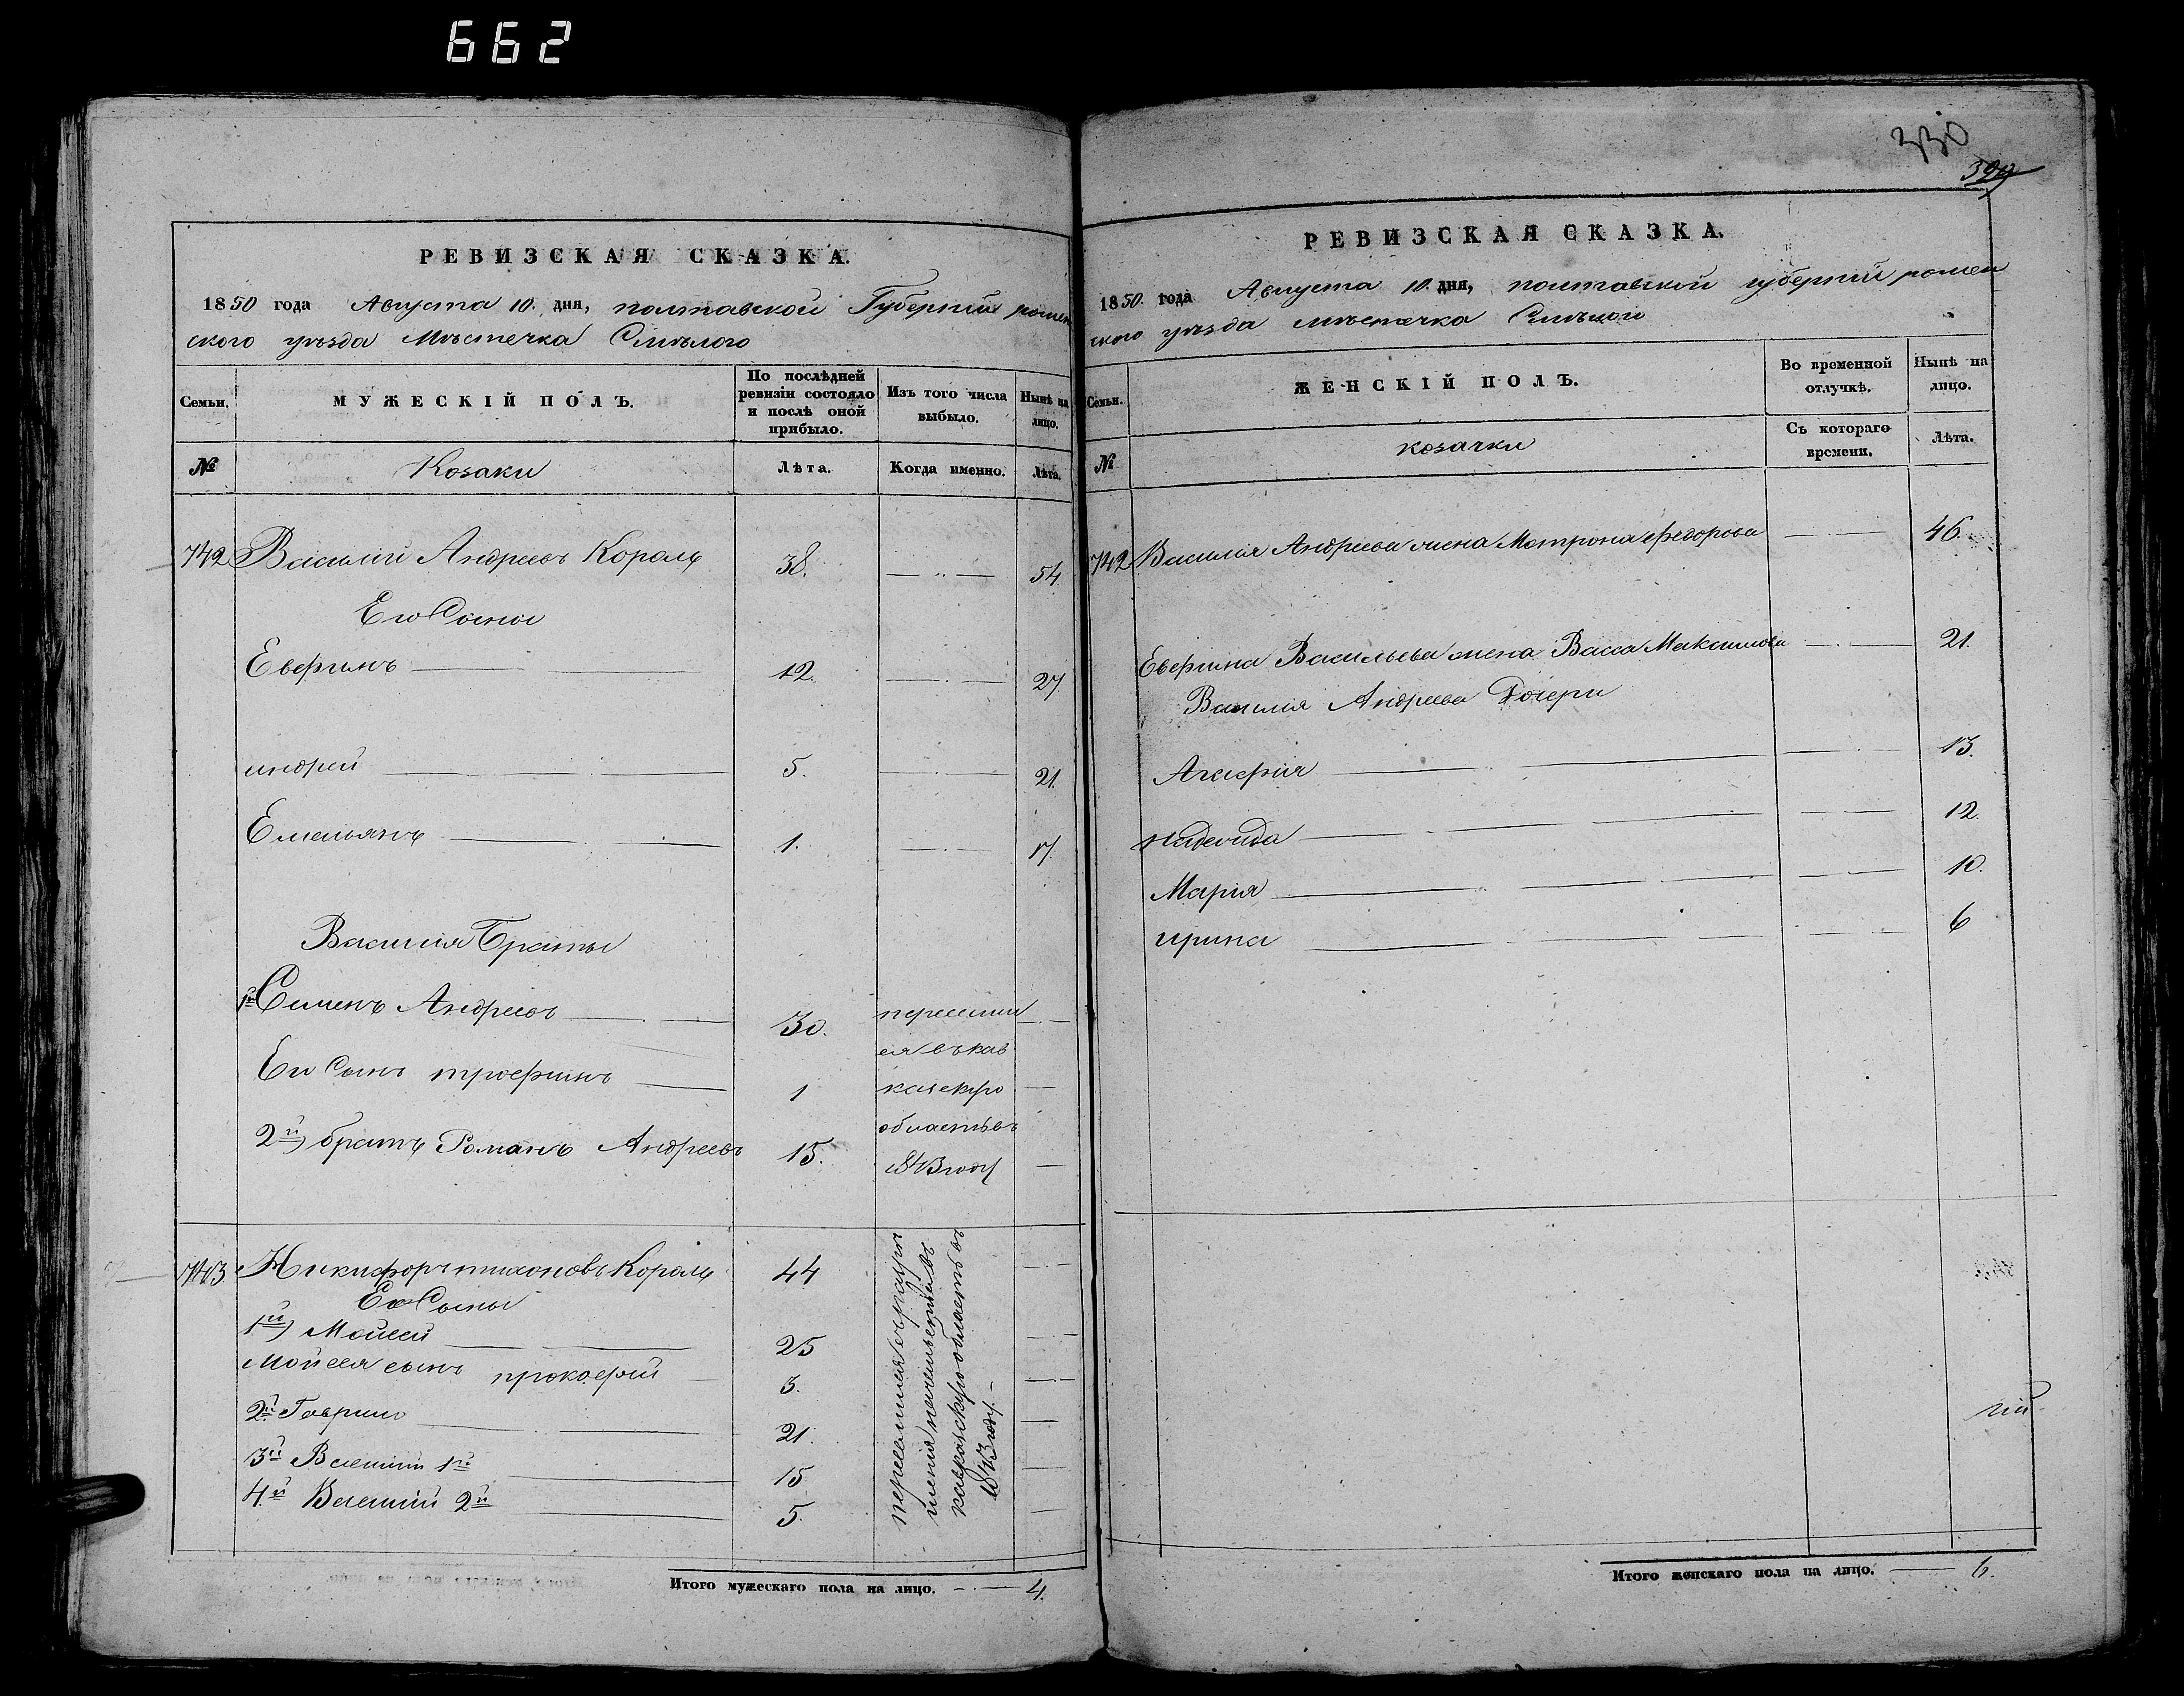 662
РЕВИЗСКАЯ СКАЗКА.
1850 года Августа 10. дня, полтавской Губерніи ромен
ского уѣзда Мѣстечка Смѣлого
Семьи. МУЖЕСКІЙ ПОЛЪ. По послѣдней ревизіи состояло и послѣ оной прибыло. Изъ того числа выбыло. Нынѣ на лицо.
№ Козаки Лѣта. Когда именно. Лѣта.
742 Василій Андреевъ Король 38. 54
Его Сыны
Евфгинъ 12. 27.
андрей 5. 21.
Емельянъ 1. 17.
Василія Браты
1й Семенъ Андреевъ 30. переселил
ся въ кав
Его Сынъ трофимъ 1 казскую
область въ
2й) братъ Романъ Андреевъ 15. 1843 году
743 Никифоръ тихоновъ Король 44
Его Сыны
1й) Мойсей 25
Мойсея сынъ прокофий 3.
2й Гаврило 21.
3й Василий 1й 15
4й Василий 2й 5.
кавказскую область въ
1843 году.
Итого мужескаго пола на лицо. 4.
330
РЕВИЗСКАЯ СКАЗКА.
1850. года Августа 10. дня, полтавской губерніи ромен
ского уѣзда мѣстечка Смѣлого
Семьи. ЖЕНСКІЙ ПОЛЪ. Во временной отлучкѣ. Нынѣ на лицо.
№ козачки Съ котораго времени. Лѣта.
742 Василія Андреева жена Матрона Федорова 46.
Васильева жена Васса Максимова 21.
Василія Андреева Дочери
Агафія 13.
надежда 12.
Марія 10.
ирина 6
Итого женскаго пола на лицо. 6.